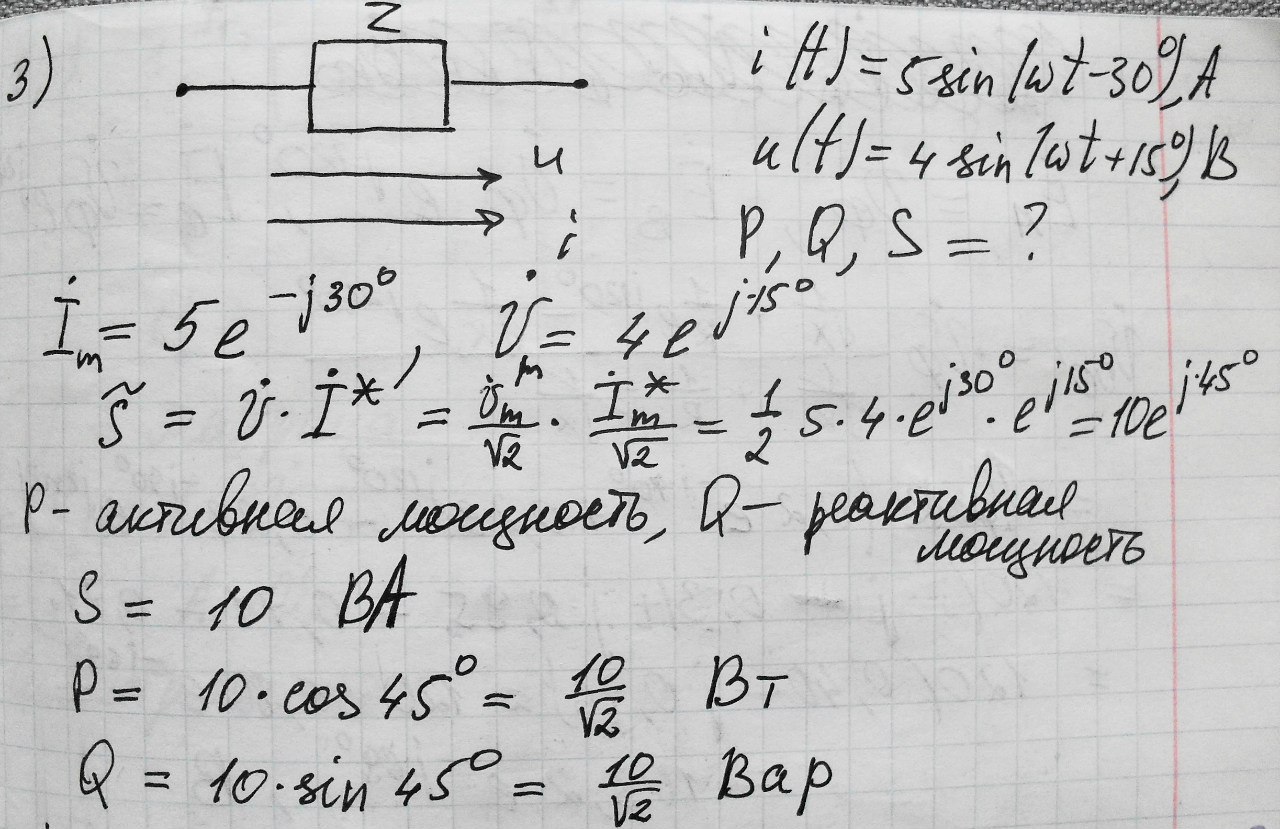 3)
Z
u
i
i(t) = 5 sin(ωt-30°), A
u(t) = 4 sin(ωt+15°), В
P, Q, S = ?
İm = 5e^{-j30°}, U̇m = 4e^{j·15°}
S̃ = U̇ · İ* = U̇m/√2 · İm*/√2 = 1/2 5·4·e^{j30°} · e^{j15°} = 10e^{j·45°}
P- активная мощность, Q- реактивная
мощность
S = 10 ВА
P = 10·cos 45° = 10/√2 Вт
Q = 10·sin 45° = 10/√2 Вар